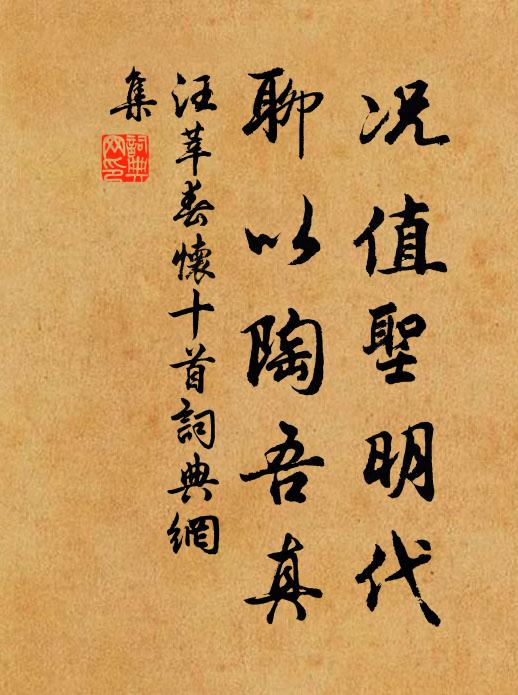 况值聖明代
聊以陶吾真
汪莘春懷十首詞典網
集
詞典網印